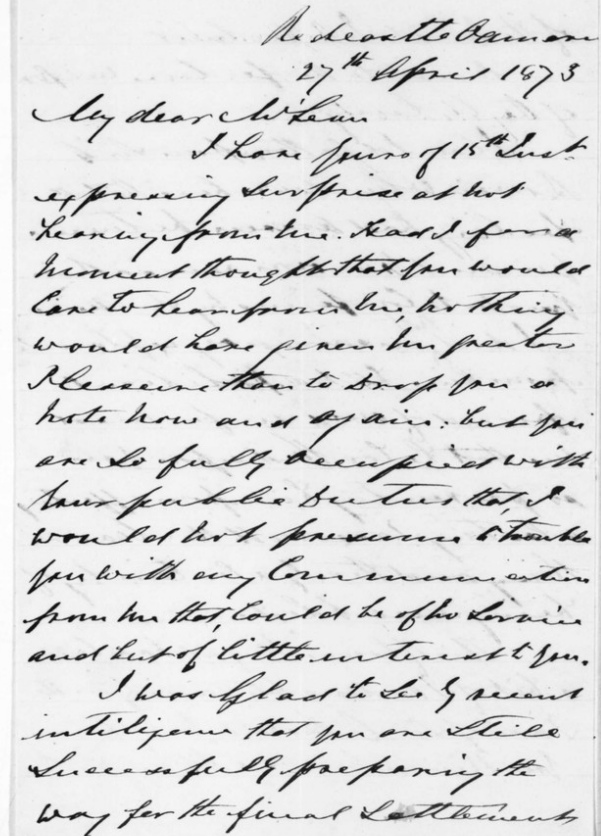 Redcastle Oamaru
27th April 1873
My dear McLean
I have yours of 15th Inst
expressing surprise at not
hearing from me. Had I for a
moment thought that you would
Care to hear from me, nothing
would have given me greater
Pleasure than to Drop you a
note now and again: but you
are so fully occupied with
your public Duties that, I
would not presume to trouble
you with any Communication
from me that, Could be of no Service
and but of little interest to you.
I was Glad to See by recent
intiligence that you are Still
Successfully preparing the
way for the final Settlement